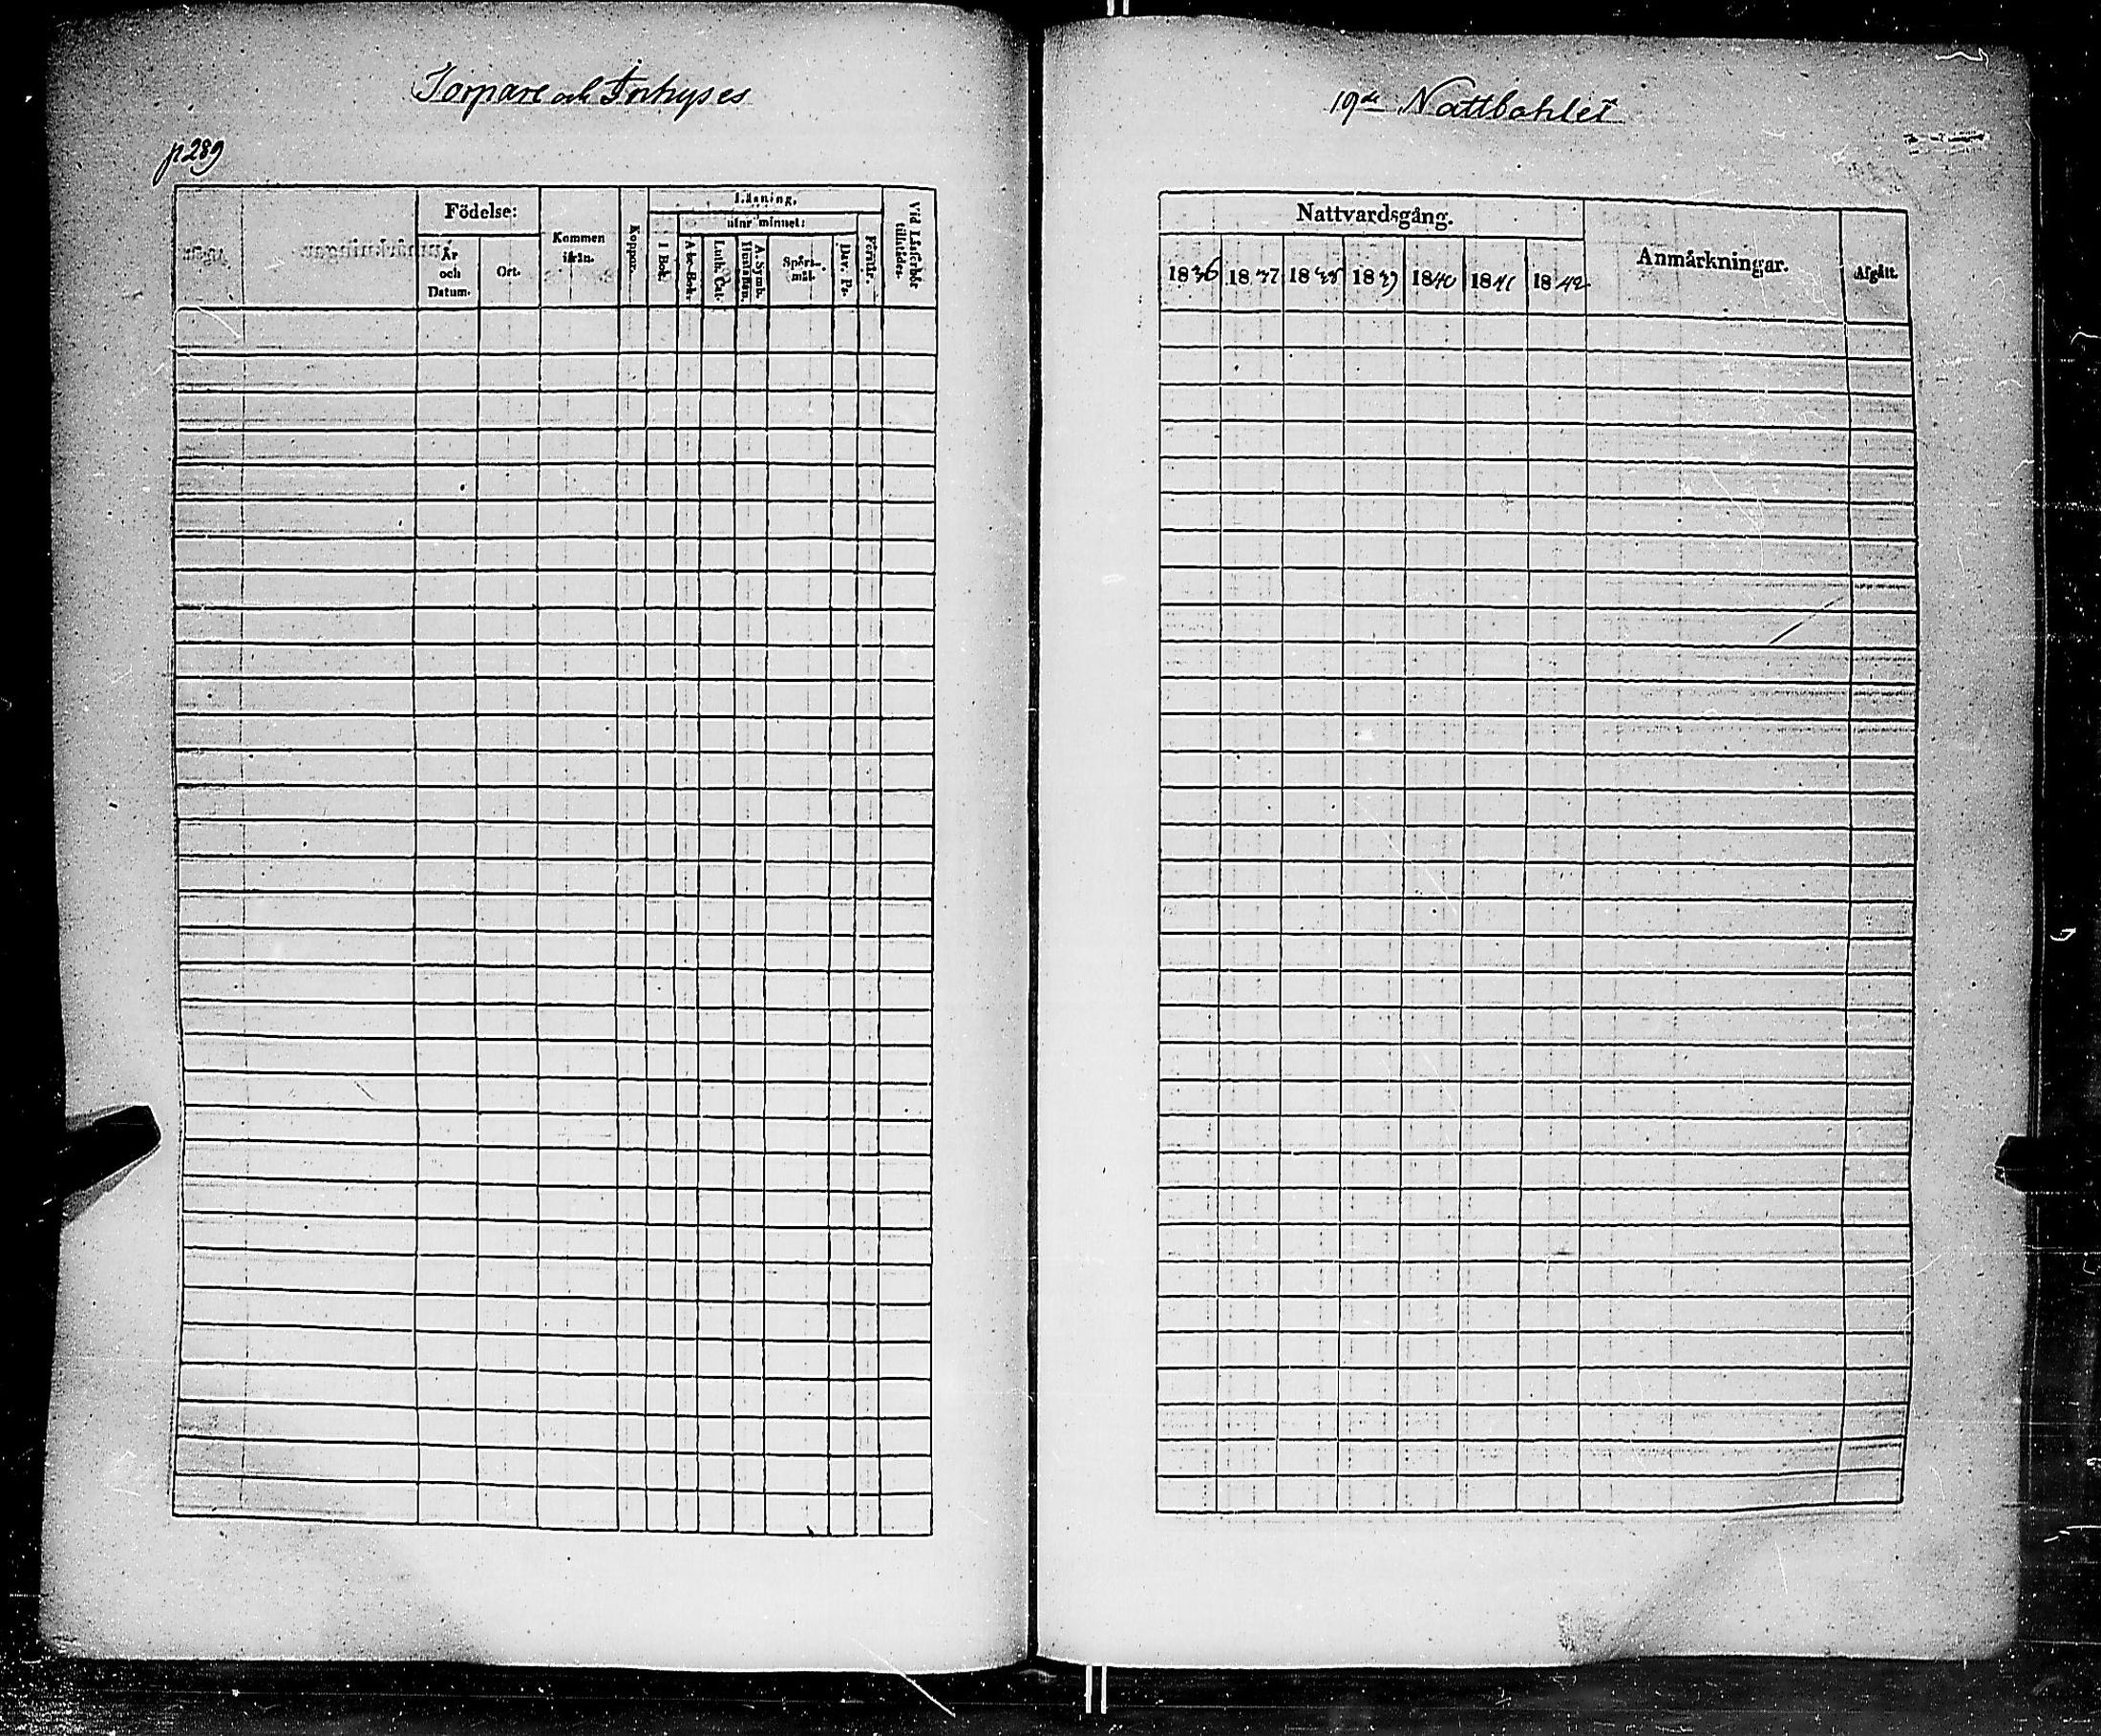 Torpare och Inhyses
p 289
Födelse:
År
och
Datum.
Ort.
Kommen
ifrån.
Koppor.
Läsning,
utur minnet:
I Bok.
Abc-Bok.
Luth. Cat.
A. Symb.
Hustaflan.
Spörs-
mål.
Dav. Ps.
Förstår.
Vid Läsförhör
tillstädes.
19de Nattbohlet
Nattvardsgång.
1836 1837 1838 1839 1840 1841 1842
Anmärkningar.
Afgått.